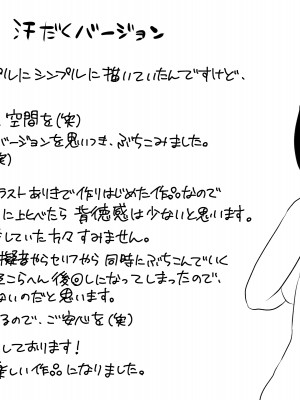 汗だくバージョン
プルにシンプルに描いていたんですけど、
空間を(笑)
バージョンを思いつき、ぶちこみました。
(笑)
ラストありきで作りはじめた作品なので
に比べたら背徳感は少ないと思います。
していた方々すみません。
擬音やらセリフやら同時にぶちこんでいく
そこらへん後回しになってしまったので、
ないのだと思います。
るので、ご安心を(笑)
しております!
楽しい作品になりました。